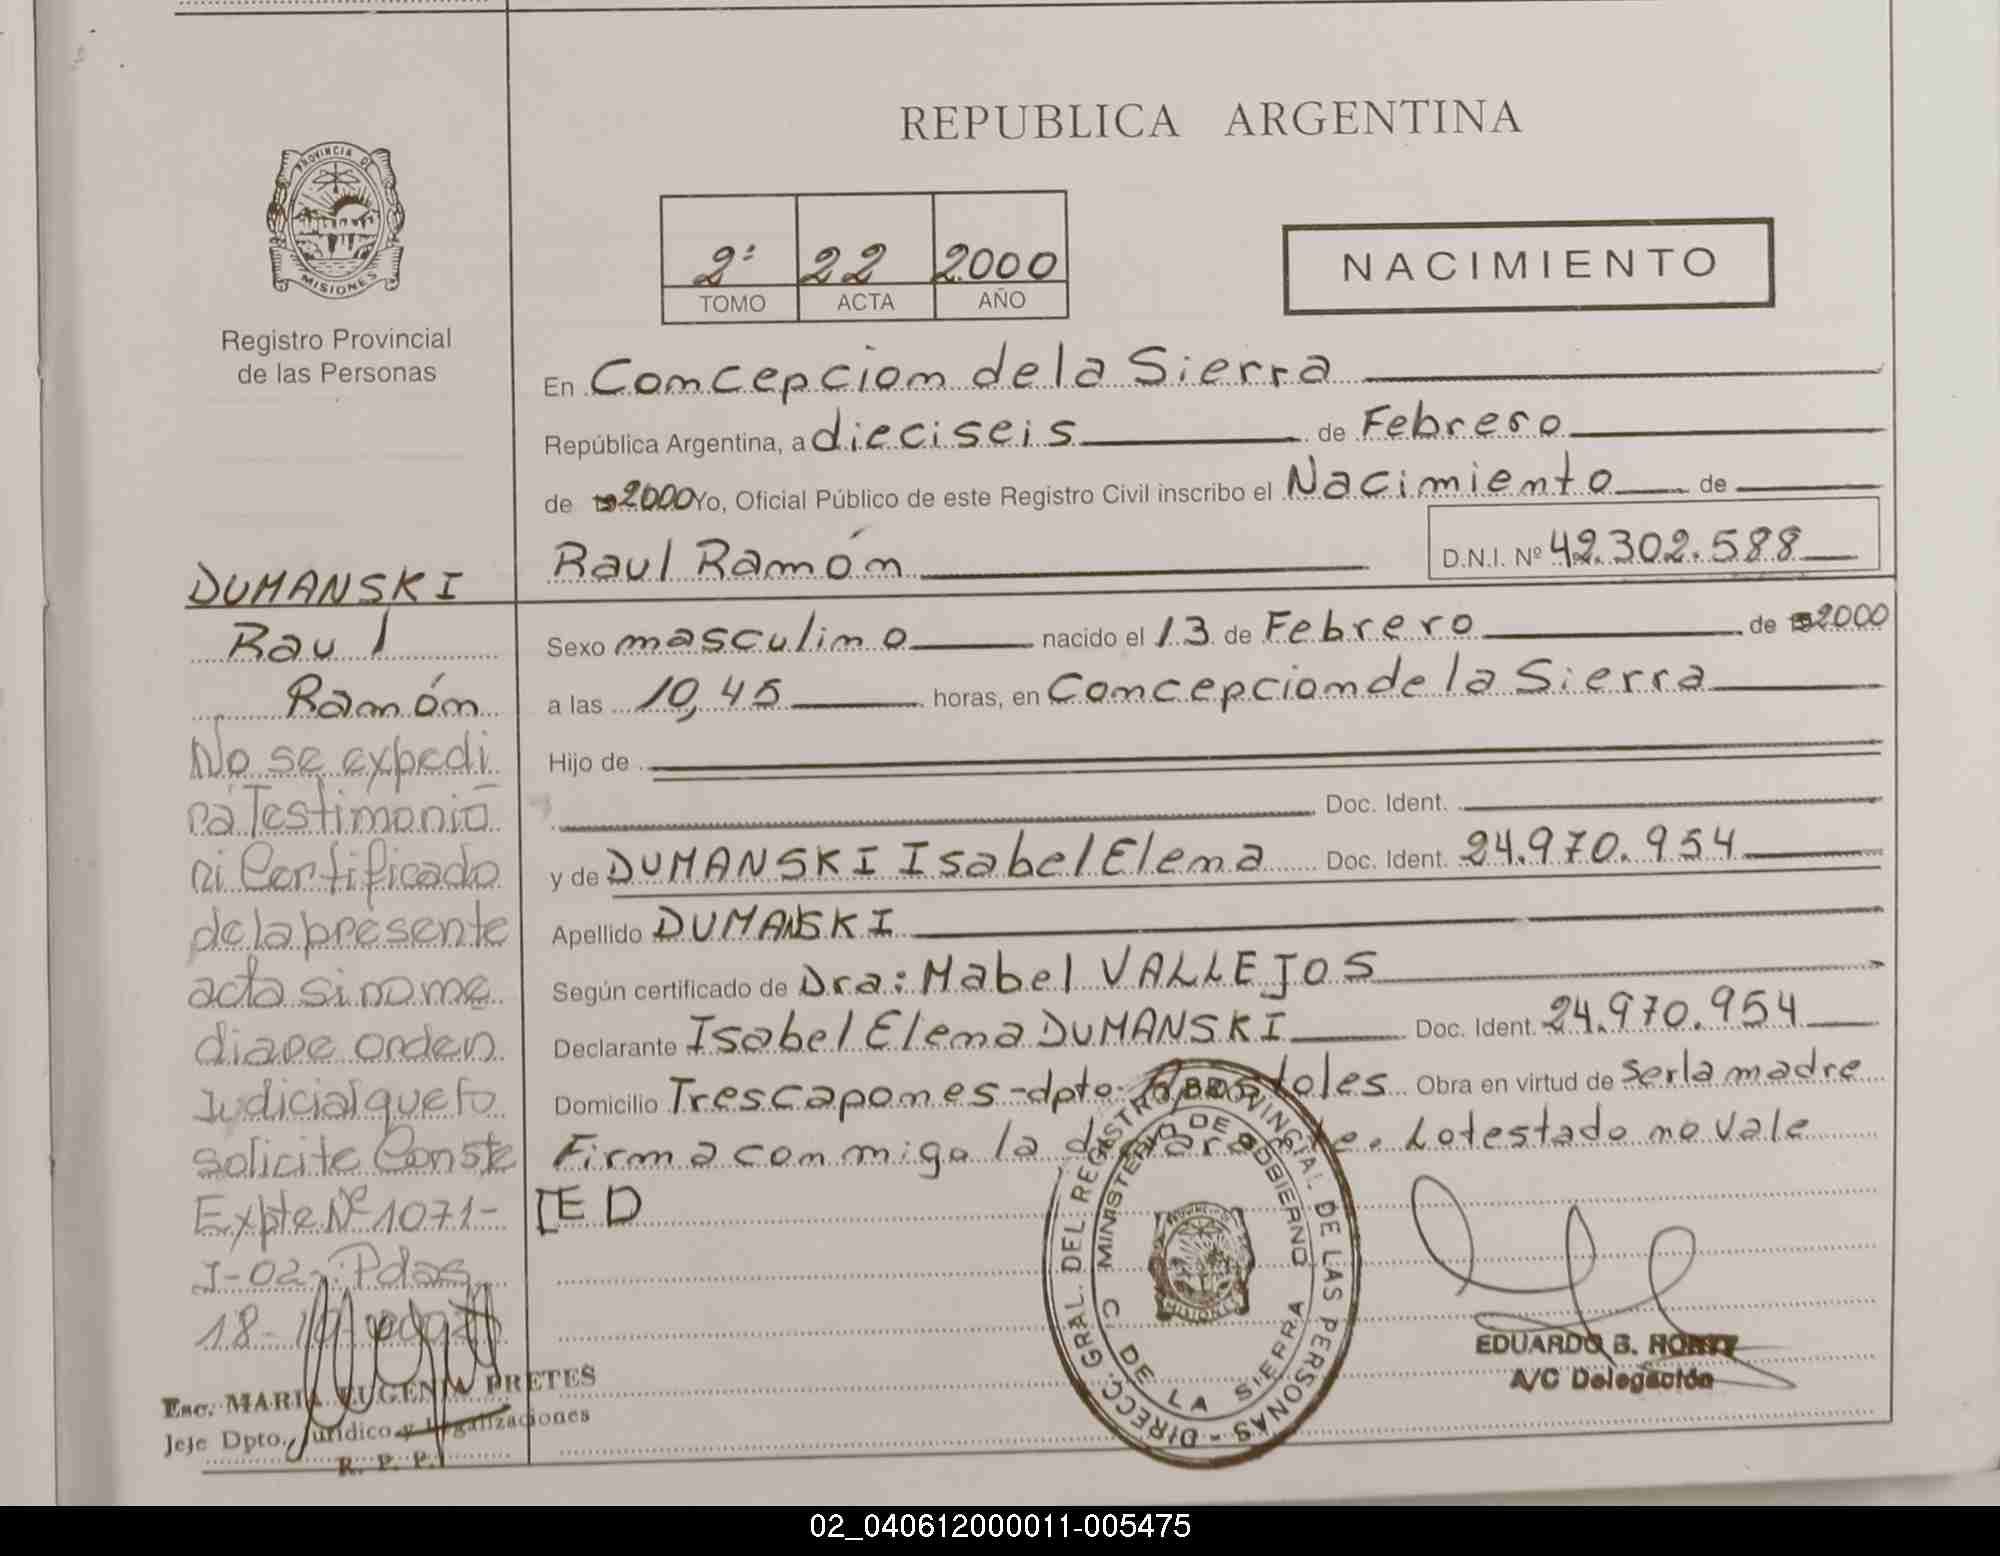 REPUBLICA ARGENTINA
PROVINCIA DE
MISIONES
Registro Provincial
de las Personas
2º 22 2000
TOMO ACTA AÑO
NACIMIENTO
En Concepcion de la Sierra
República Argentina, a dieciseis de Febrero
de 2000 Yo, Oficial Público de este Registro Civil inscribo el Nacimiento de
Raul Ramón D.N.I. Nº 42.302.588
Sexo masculino nacido el 13 de Febrero de 2000
a las 10,45 horas, en Concepcion de la Sierra
Hijo de
Doc. Ident.
y de DUMANSKI Isabel Elena Doc. Ident. 24.970.954
Apellido DUMANSKI
Según certificado de Dra: Mabel VALLEJOS
Declarante Isabel Elena DUMANSKI Doc. Ident. 24.970.954
Domicilio Trescapones-dpto. Apostoles Obra en virtud de ser la madre
Firma conmigo la declarante. Lo testado no vale
ED
DUMANSKI
Raul
Ramón
No se expedi
ra Testimonio
ni Certificado
de la presente
acta si no me
diare orden
Judicial que lo
solicite Conste
Expte Nº 1071-
J-02-Pdas
18-
Esc. MARIA EUGENIA PRETES
Jefe Dpto. Jurídico y Legalizaciones
R. P. P.
DIRECC. GRAL. DEL REGISTRO PROVINCIAL DE LAS PERSONAS -
MINISTERIO DE GOBIERNO
C. DE LA SIERRA
MISIONES
EDUARDO B.
A/C Delegación
02_040612000011-005475